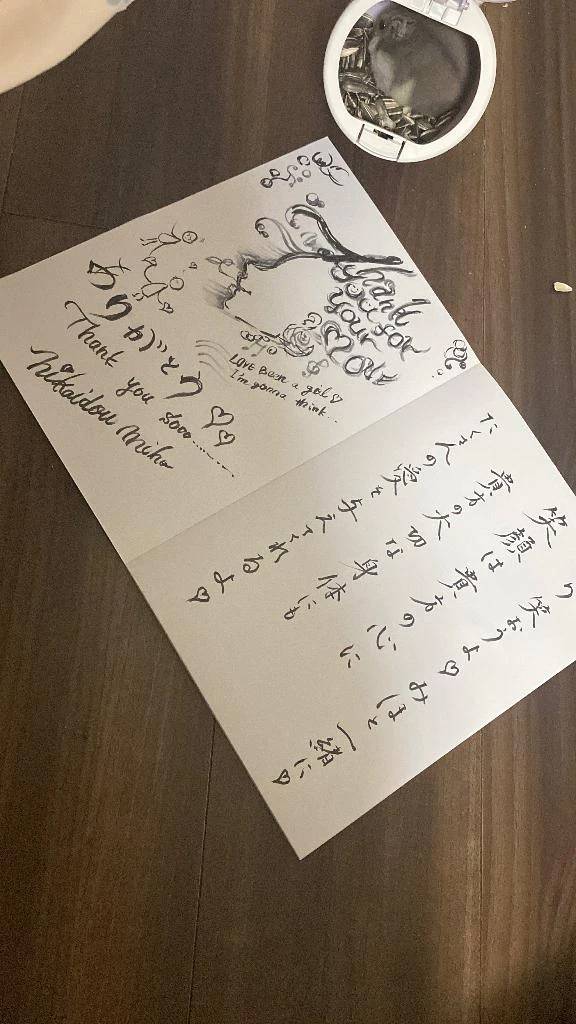 Thank
you for
your
Love
LOVE Been a girl♡
I'm gonna think...
ありがとう♡♡
Thank you sooo........
Nikaidou Miho
り笑おうよ♡ みほと一緒に♡
笑顔は貴方の心に
貴方の大切な身体にも
たくさんの愛を与えてくれるよ♡